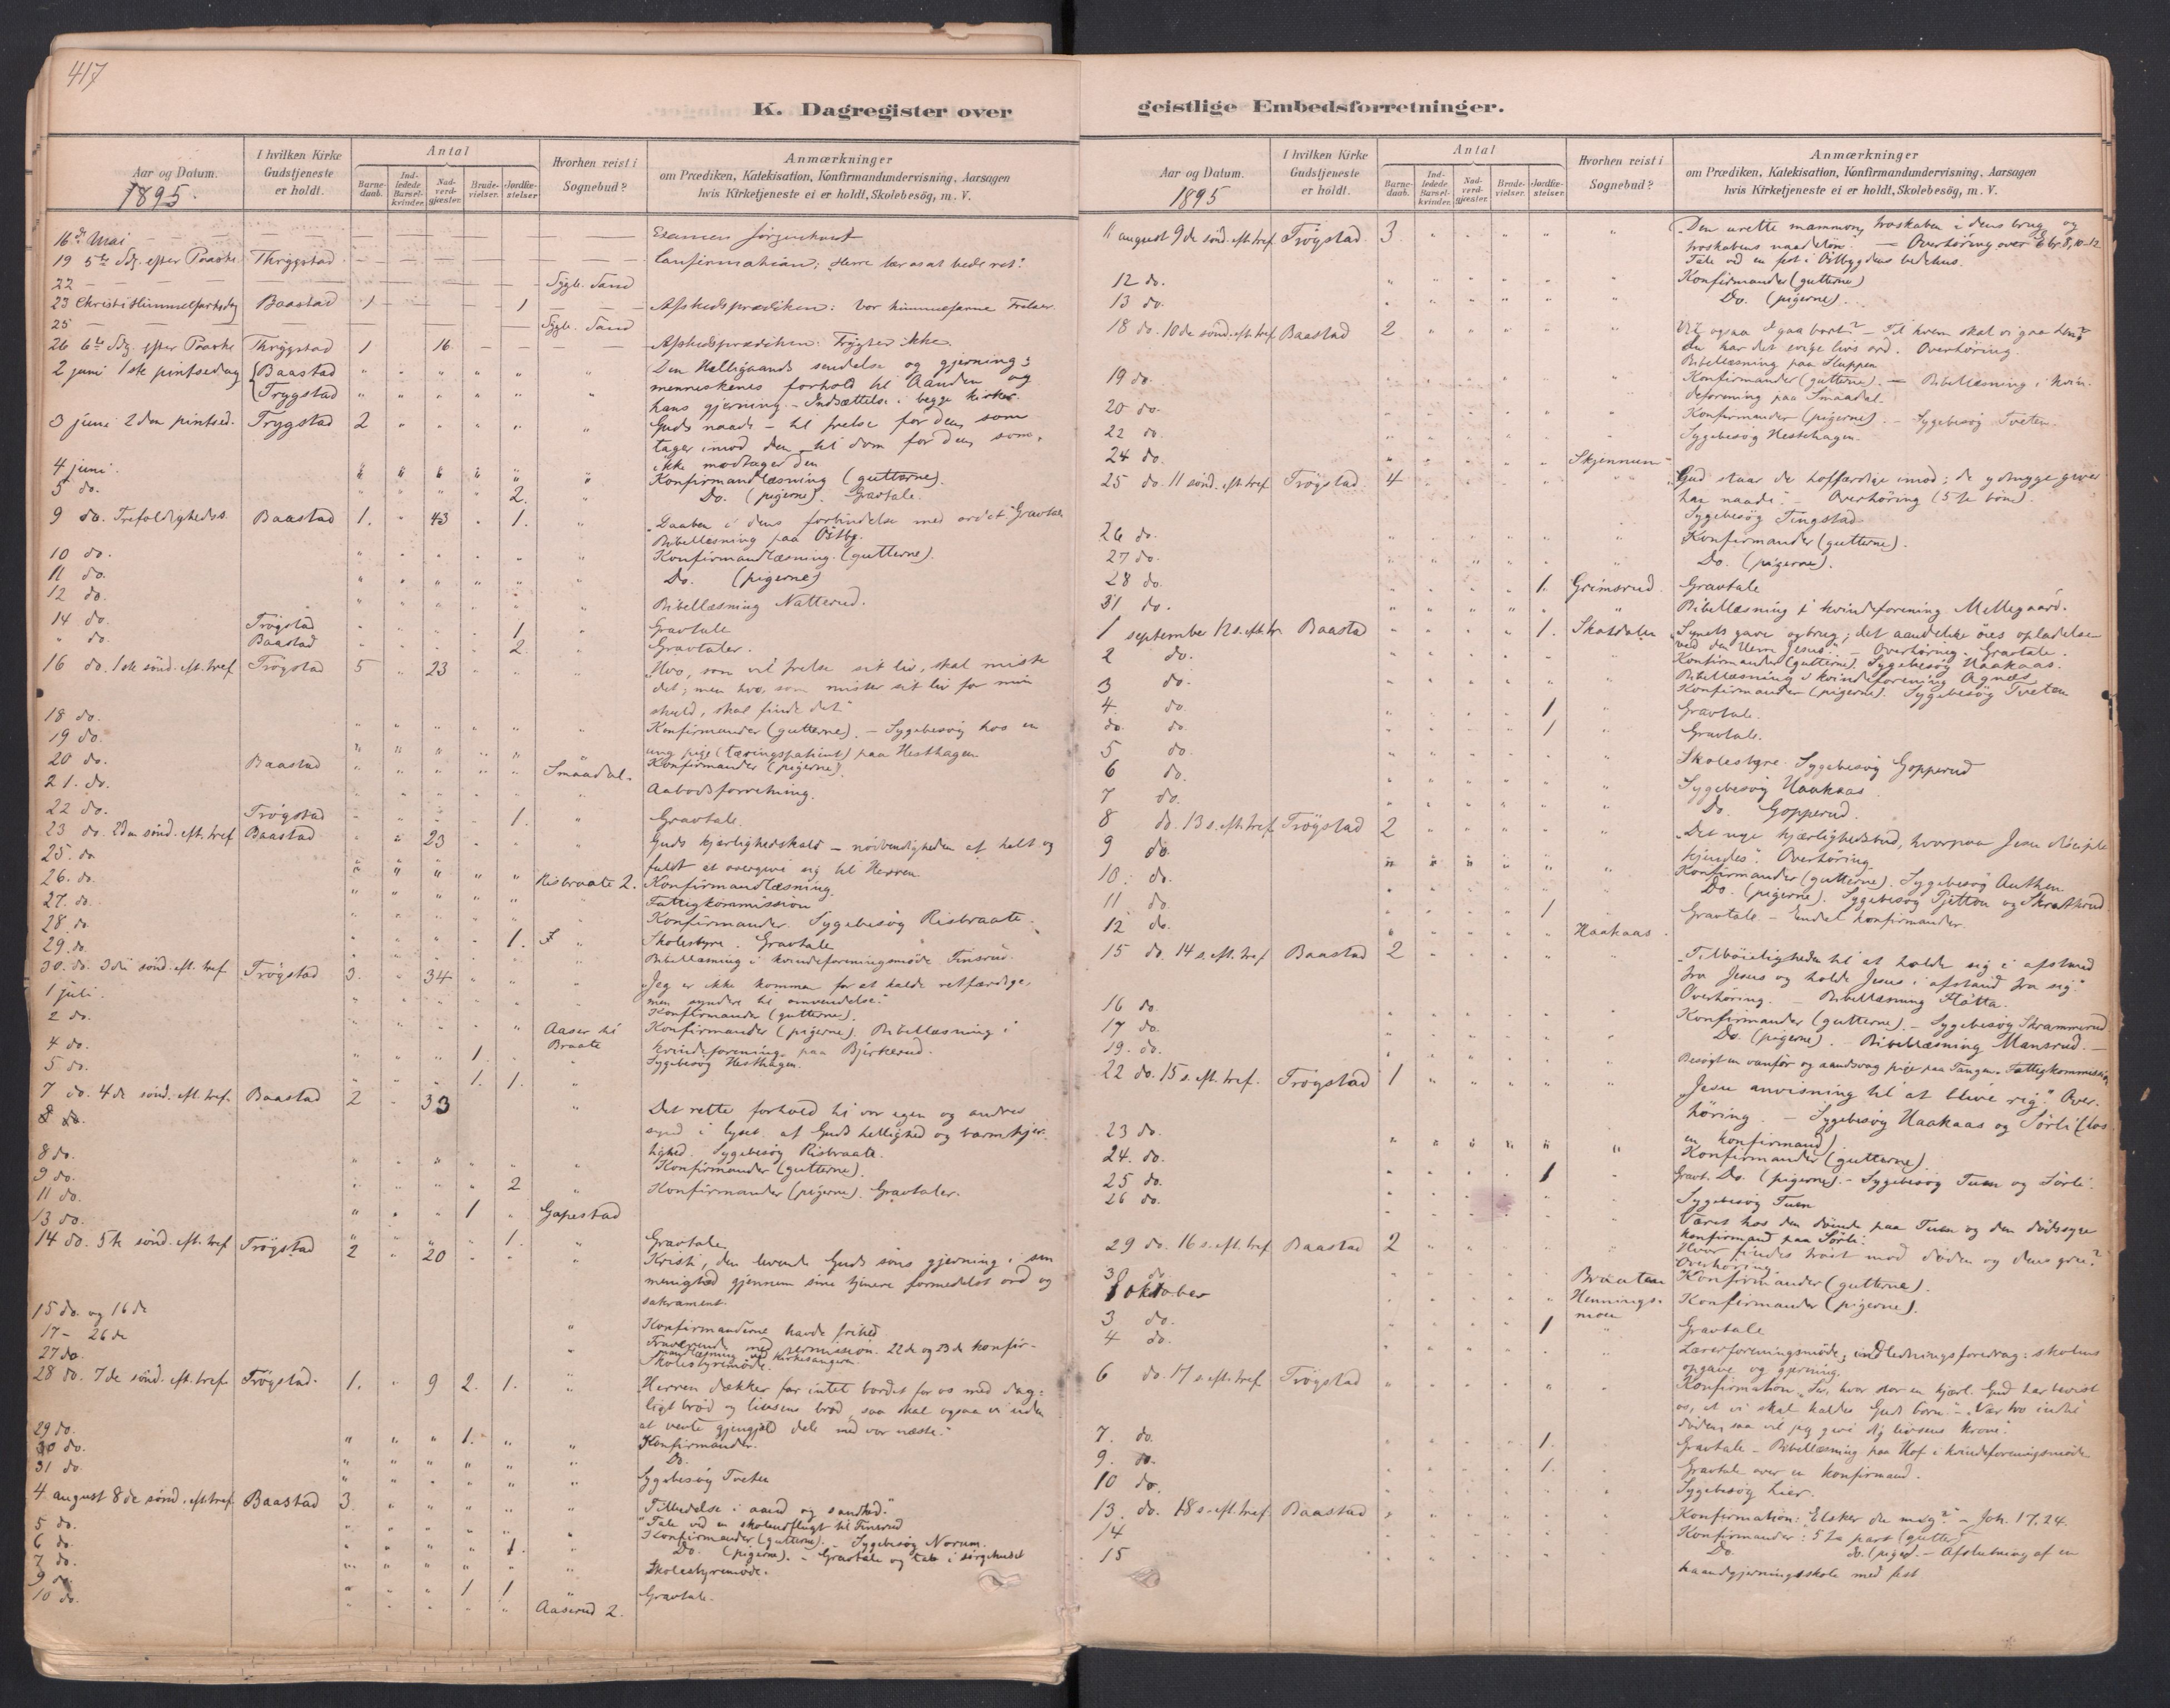 417
K. Dagregister over
geistlige Embedsforretninger.
Aar og Datum.
1895.
I hvilken Kirke Gudstjeneste er holdt.
Antal
Barne-daab.
Ind-ledede Barsel-kvinder.
Nad-verd-gjæster.
Brude-vielser.
Jordfæ-stelser
Hvorhen reist i Sognebud?
Anmærkninger
om Prædiken, Katekisation, Konfirmandundervisning, Aarsagen
hvis Kirketjeneste ei er holdt, Skolebesög, m. V.
16de Mai — Examen
19 5te Sdg. efter Paaske Thrygstad — Confirmation: Herre lær os at bede ret!
22 — Sygb. Sand
23 Christi Himmelfartsdag Baastad 1 — 1 — Afskedsprædiken: Vor himmelfarne Frelser.
25 — Sygb. Sand
26 6te Sdg. efter Paaske Thrygstad 1 16 — Afskedsprædiken: Frygter ikke.
2 juni 1ste pintsedag {Baastad " " " " " " Den Helligaands sendelse og gjerning;
{Trygstad " " " " " " menneskenes forhold til Aanden og
hans gjerning. - Indsættelse i begge kirker.
3 juni 2den pintsed. Trygstad 2 " " " " " Guds naade - til frelse for den, som
tager imod den, til dom for den, som
ikke modtager den
4 juni. " " " " " " Konfirmandlæsning (gutterne).
5 do. " " " " 2. Do. (pigerne). Gravtale.
9 do. Trefoldigheds. Baastad 1. " 43 " 1. " "Daaben i dens forbindelse med ordet" Gravtale
Bibellæsning paa Östby.
10 do. " " " " " " Konfirmandlæsning (gutterne).
11 do. " " " " " " Do. (pigerne)
12 do. " " " " " " Bibellæsning Natterud.
14 do. Trögstad " " " " 1 " Gravtale
" do. Baastad " " " " 2. " Gravtaler.
16 do. 1ste sönd. eft. tref Trögstad 5 " 23 " " " "Hvo, som vil frelse sit liv, skal miste
det; men hvo, som mister sit liv for min
skyld, skal finde det"
18 do. " " " " " " Konfirmander (gutterne). - Sygebesög hos en
ung pige (tæringspatient) paa Hesthagen
19 do. " " " " " Konfirmander (pigerne).
20 do. Baastad " " " " " Smaadal.
21. do. Aabodsforretning.
22 do. Trögstad " " " " 1. " Gravtale.
23 do. 2den sönd. eft. tref Baastad " " 23 " " " Guds kjærlighedskald - nödvendigheden af helt og
fuldt at overgive sig til Herren.
25. do " " " " " Risbraate 2. Konfirmandlæsning.
26. do. Fattigkommission
27. do. Konfirmander. Sygebesög Risbraate.
28. do 1. Skolestyre. Gravtale
29. do. Bibellæsning i kvindeforeningsmöde Finsrud.
30. do. 3die sönd. eft. tref Trögstad 3. " 34 " " " "Jeg er ikke kommen for at kalde retfærdige,
men syndere til omvendelse."
1 juli. Konfirmander (gutterne).
2 do. Aaser til Braate Konfirmander (pigerne). Bibellæsning i
kvindeforening paa Bjerkerud.
4 do. 1. Sygebesög Hesthagen.
5 do. 1. 1.
7 do. 4de sönd. eft. tref. Baastad 2 " 33 " Det rette forhold til vor egen og andres
synd i lyset af Guds hellighed og barmhjer-
tighed. Sygebesög Risbraate.
8 do. Konfirmander (gutterne).
9 do. 2 Konfirmander (pigerne). Gravtaler.
11 do. 1 Gapestad
13 do. 1. Gravtale
14 do. 5te sönd. eft. tref Trögstad 2 " 20 " " " Kristi, den levende Guds söns gjerning i sin
menighed gjennem sine tjenere formedelst ord og
sakrament.
15 do. og 16 de " Konfirmanderne havde frihed
17 - 26 de " Fraværende med permission. 22de og 23de konfir-
mandlæsning ved kirkesangeren.
27 do. Skolestyremöde.
28 do. 7de sönd. eft. tref. Trögstad. 1. " 9 2. 1. " Herren dækker far intet bordet for os med dag-
ligt bröd og livsens bröd, saa skal ogsaa vi uden
at vente gjengjæld dele med vor næste."
29 do. " " " 1. " " Konfirmander.
30 do. " " " " " " Do.
31 do. " " " " " " Sygebesög Tveten
4 august 8de sönd. eft. tref. Baastad 3. " " " " " "Tilbedelse i aand og sandhed."
Tale ved en skoleudflugt til Finsrud
5 do. Konfirmander (gutterne). - Sygebesög Norum.
6 do. 1. Do. (pigerne). - Gravtale og tale i sörgehuset
7 do. Skolestyremöde.
9 do. 1 1 Gravtale.
10 do. Aaserud 2.
Aar og Datum.
1895
I hvilken Kirke Gudstjeneste er holdt.
Antal
Barne-daab.
Ind-ledede Barsel-kvinder.
Nad-verd-gjæster.
Brude-vielser.
Jordfæ-stelser.
Hvorhen reist i Sognebud?
Anmærkninger
om Prædiken, Katekisation, Konfirmandundervisning, Aarsagen
hvis Kirketjeneste ei er holdt, Skolebesög, m. V.
11 august 9de sönd. eft. tref. Trögstad 3. " " " " " "Den urette mammon, troskaben i dens brug og
troskabens naadelön." - Overhöring over 8, 10-12
Tale ved en fest i Östbygdens bedehus.
12 do. Konfirmander (gutterne)
13 do. Do. (pigerne).
18 do. 10de sönd. eft. tref. Baastad 2 " " " " " Vil ogsaa I gaa bort? - Til hvem skal vi gaa hen?
du har det evige livs ord. Overhöring.
Bibellæsning paa
19 do. Konfirmander (gutterne). - Bibellæsning i kvin-
deforening paa Smaadal.
20 do. Konfirmander (pigerne). - Sygebesög Tveten.
22 do. Sygebesög Hesthagen.
24 do. Skjennum
25 do. 11 sönd. eft. tref. Trögstad 4 " " " " " Gud staar de hoffærdige imod; de ydmyge giver
han naade". - Overhöring (5te bön).
Sygebesög Tingstad.
26 do. Konfirmander (gutterne).
27 do. Do. (pigerne).
28 do. 1. Grimsrud Gravtale
31 do. Bibellæsning i kvindeforening Mellegaard.
1 september 12 s. eft. tr. Baasta 1. Skatdalen "Synets gave og brug; det aandelike öies opladelse
ved den Herre Jesus." - Overhöring. Gravtale.
2 do. Konfirmander (gutterne). Sygebesög Haakaas.
Bibellæsning i kvindeforening Agnæs
3 do. Konfirmander (pigerne). Sygebesög Tveten
4. do. 1 Gravtale.
do. do. 1 Gravtale.
5 do. Skolestyre. Sygebesög Gopperud
6 do. Sygebesög Haakaas.
7 do. Do. Gopperud.
8 do. 13 s. eft. tref. Trögstad 2 " " " " " "Det nye kjærlighedsbud, hvorpaa Jesu disciple
kjendes". Overhöring.
9 do. Konfirmander (gutterne). Sygebesög Authen
10. do. Do. (pigerne). Sygebesög
11. do. 1 Gravtale. - Endel konfirmander.
12 do. Haakaas.
15 do. 14 s. eft. tref Baastad 2 " " " " " "Tilböieligheden til at holde sig i afstand
fra Jesus og holde Jesus i afstand fra sig."
Overhöring. - Bibellæsning
16 do. Konfirmander (gutterne). - Sygebesög Skrammerud
17 do. Do. (pigerne). - Bibellæsning Mansrud. -
19. do. Besögt en vanför og aandsvag pige paa Tangen. Fattigkommission
22 do. 15 s. eft. tref. Trögstad 1 " " " " " Jesu anvisning til at blive rig." Over-
höring. - Sygebesög Haakaas og Sörli (hos
en konfirmand)
23 do. Konfirmander (gutterne).
24. do. 1 Gravt. Do. (pigerne). - Sygebesög Tuen og Sörli.
25 do. Sygebesög Tuen
26 do. Været hos den döende paa Tuen og den dödssyge
konfirmand paa Sörli.
29 do. 16 s. eft. tref Baastad 2 " " " " " Hvor findes tröst mod döden og dens gru?
Overhöring.
30 do. Braaten Konfirmander (gutterne).
1 oktober Hennings-moen Konfirmander (pigerne).
3 do. 1 Gravtale
4 do. Lærerforeningsmöde; indledningsforedrag: skolens
opgave og gjerning.
6 do. 17 s. eft. tref Trögstad " " " " " Konfirmation. Ser, hvor stor en kjærl. Gud har bevist
os, at vi skal kaldes Guds börn." - "Vær tro indtil
döden, saa vil jeg give dig livsens krone".
7. do. 1. Gravtale - Bibellæsning paa Hof i kvindeforeningsmöde
9. do. 1. Gravtale over en konfirmand.
10 do. Sygebesög Lier.
13. do. 18 s. eft. tref. Baastad Konfirmation: Elsker du mig? - Joh. 17, 24.
14 Konfirmander: 5te part (gutter)
15 Do. do. (piger). - Afslutning af en
haandgjerningsskole med fest